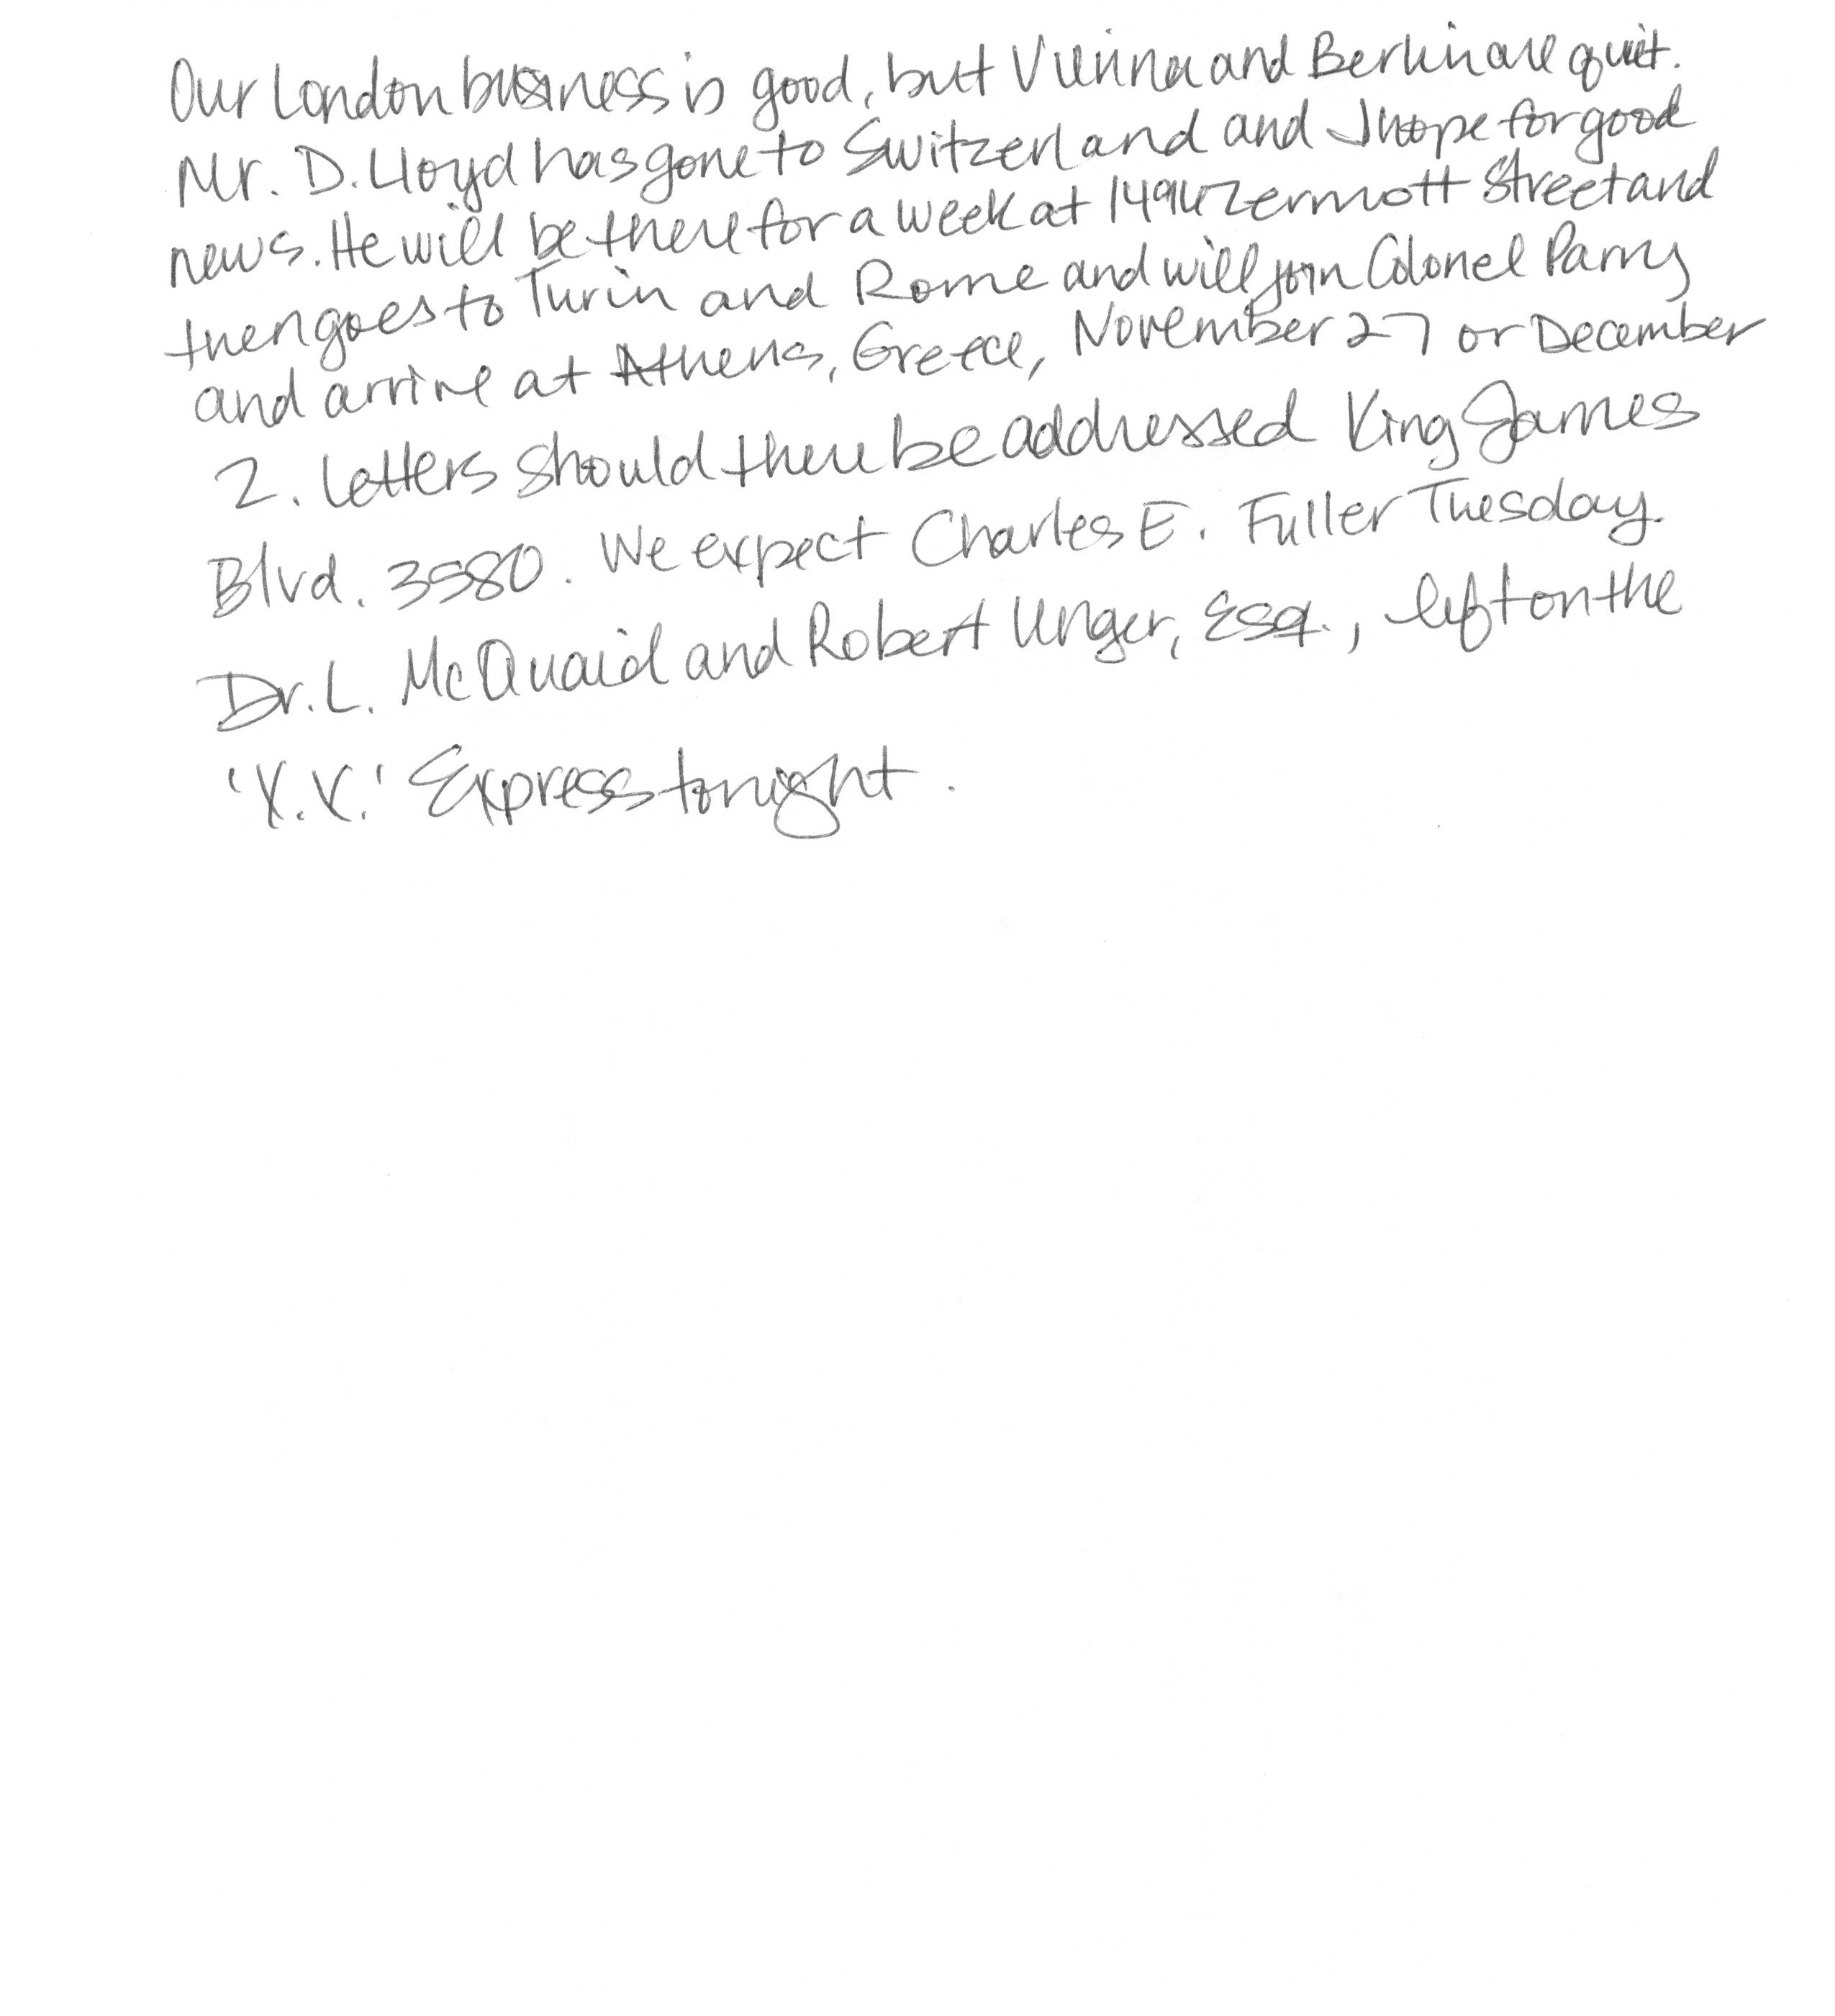 Our London business is good, but Vienna and Berlin are quiet.
Mr. D. Lloyd has gone to Switzerland and I hope for good
news. He will be there for a week at 1496 Zermott Street and
then goes to Turin and Rome and will join Colonel Parry
and arrive at Athens, Greece, November 27 or December
2. Letters should there be addressed King James
Blvd. 3580. We expect Charles E. Fuller Tuesday.
Dr. L. McQuaid and Robert Unger, Esq., left on the
'Y.X.' Express tonight.